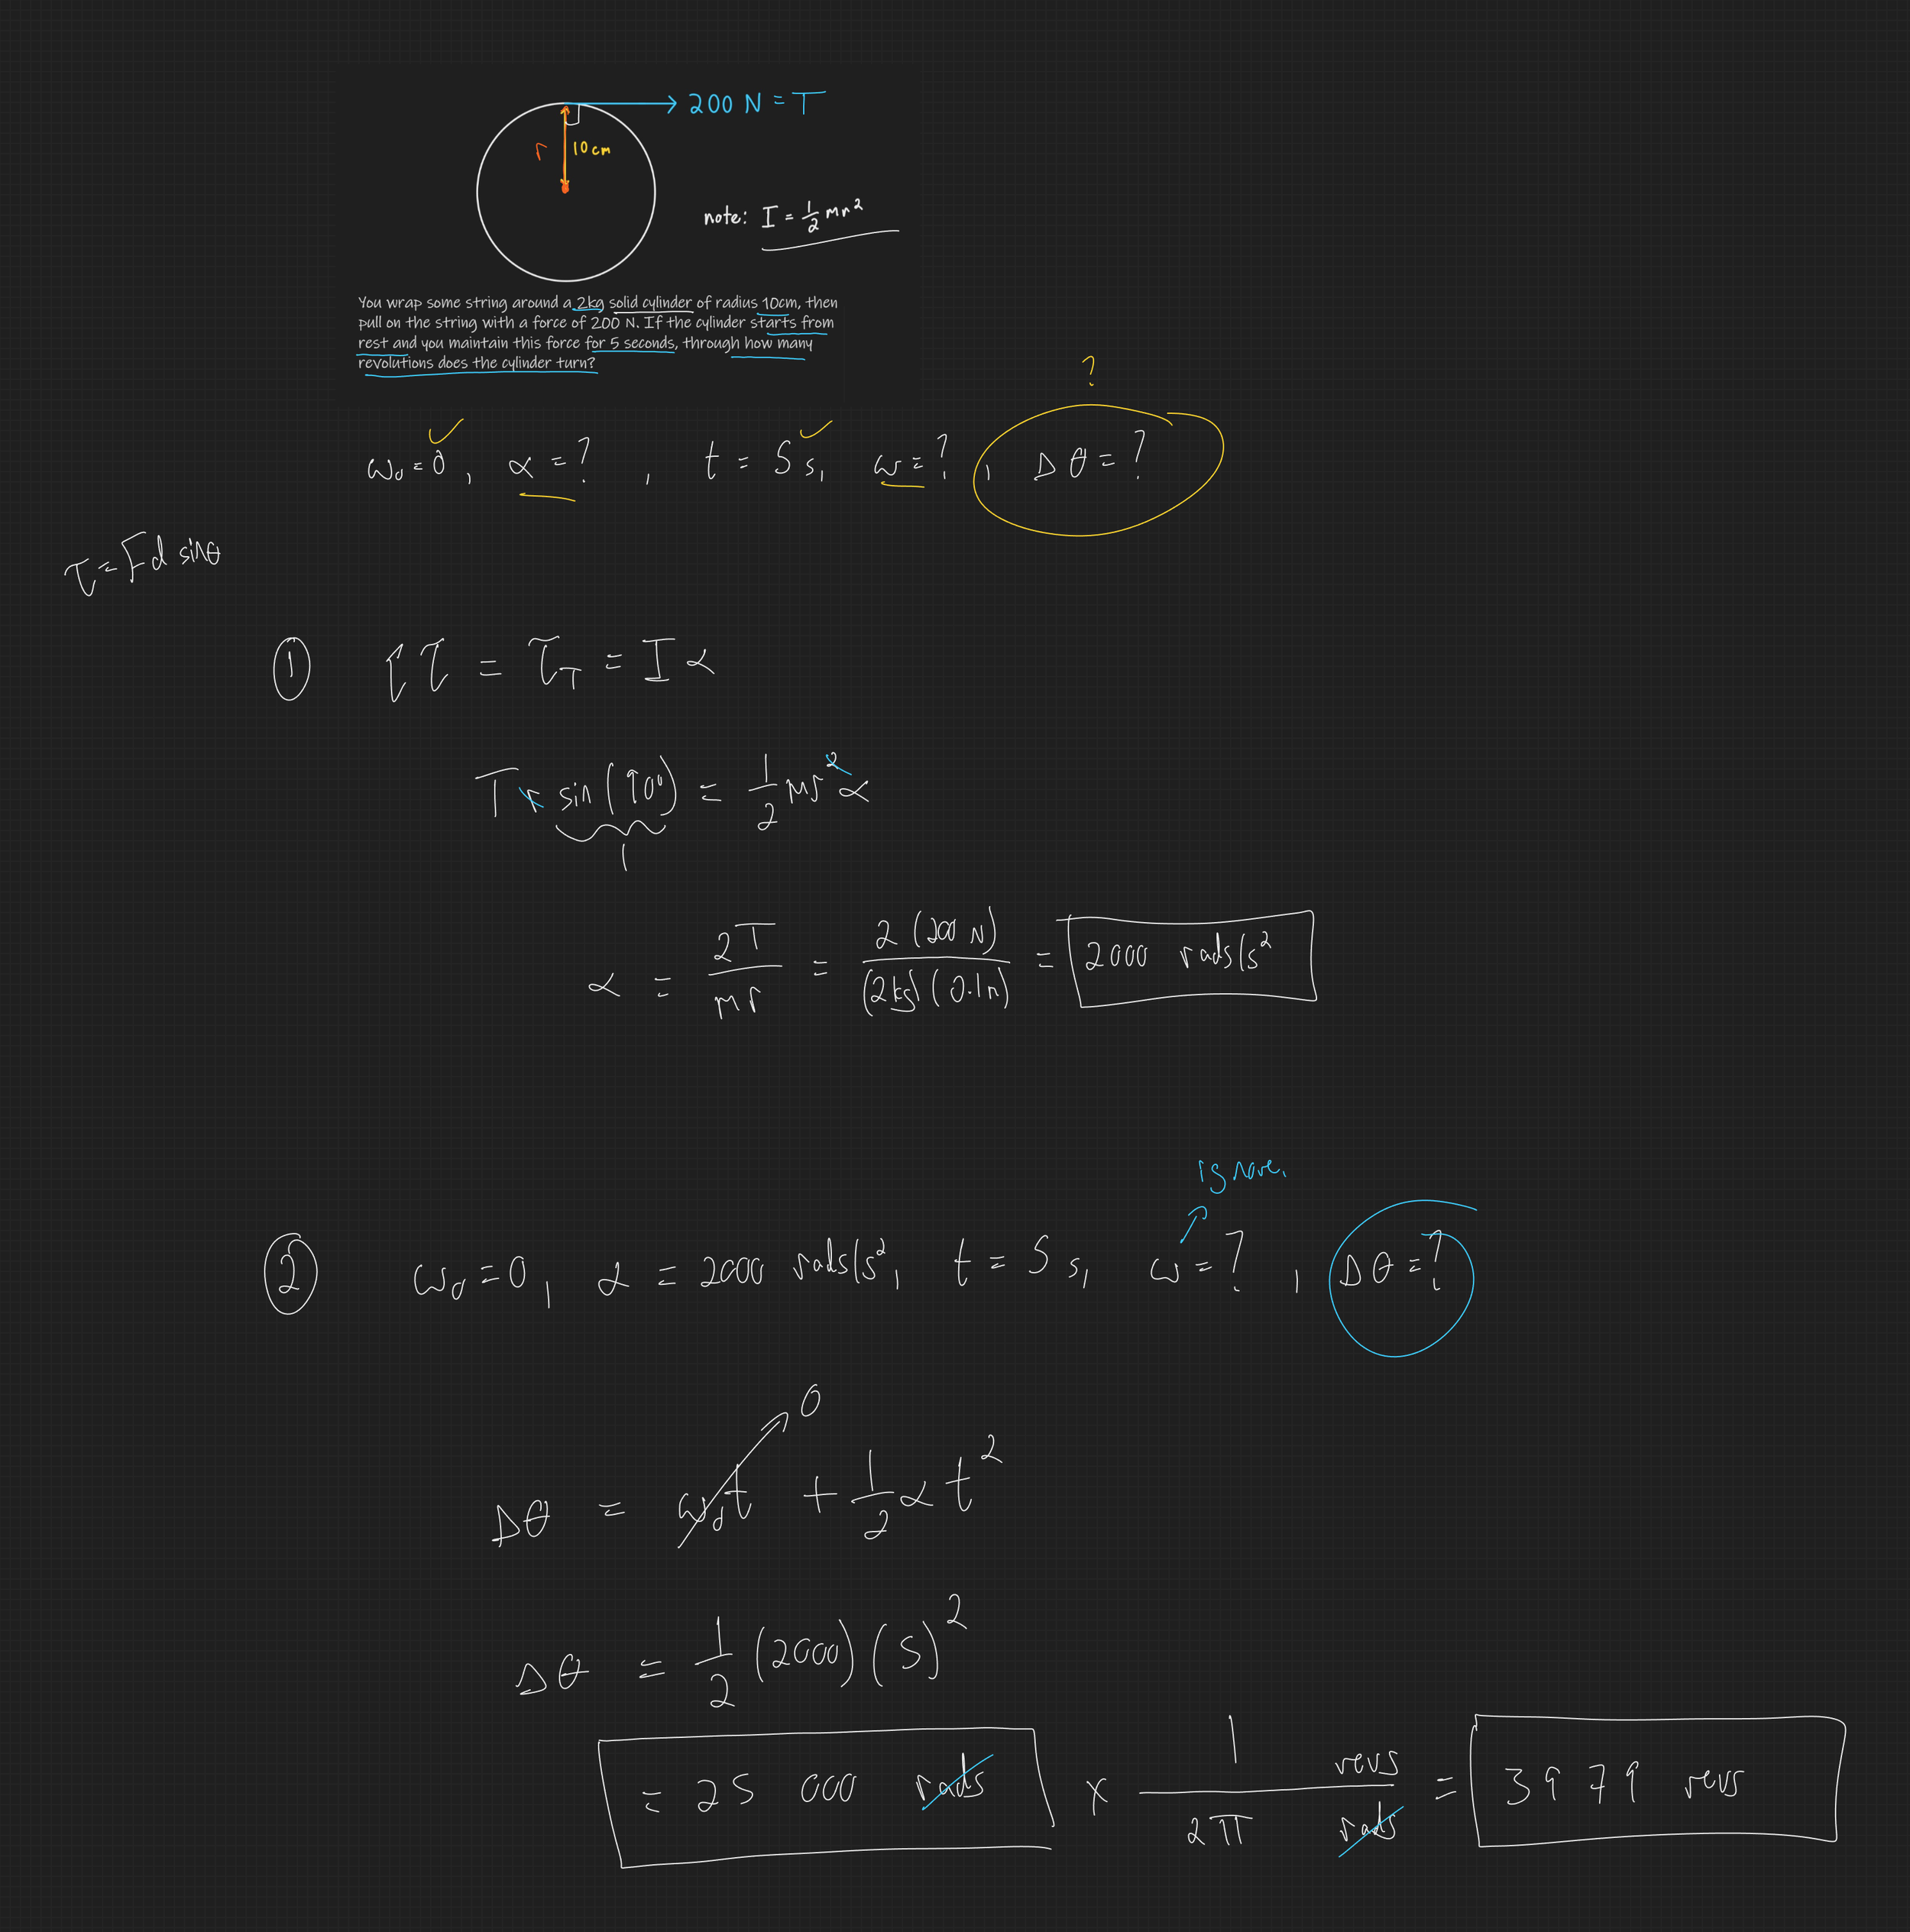 200 N = T
r 10 cm
note: I = 1/2 mr²
You wrap some string around a 2kg solid cylinder of radius 10cm, then
pull on the string with a force of 200 N. If the cylinder starts from
rest and you maintain this force for 5 seconds, through how many
revolutions does the cylinder turn?
?
ω₀ = 0, α = ? , t = 5 s, ω = ? , Δθ = ?
τ = Fd sinθ
① ↑τ = τ_T = I α
T r sin(90°) = 1/2 mr² α
1
α = 2T/mr = 2(200 N)/(2kg)(0.1m) = 2000 rads/s²
ignore.
② ω₀ = 0, α = 2000 rads/s², t = 5 s, ω = ? , Δθ = ?
0
Δθ = ω₀t + 1/2 α t²
Δθ = 1/2 (2000)(5)²
= 25 000 rads × 1/2π revs/rads = 3979 revs